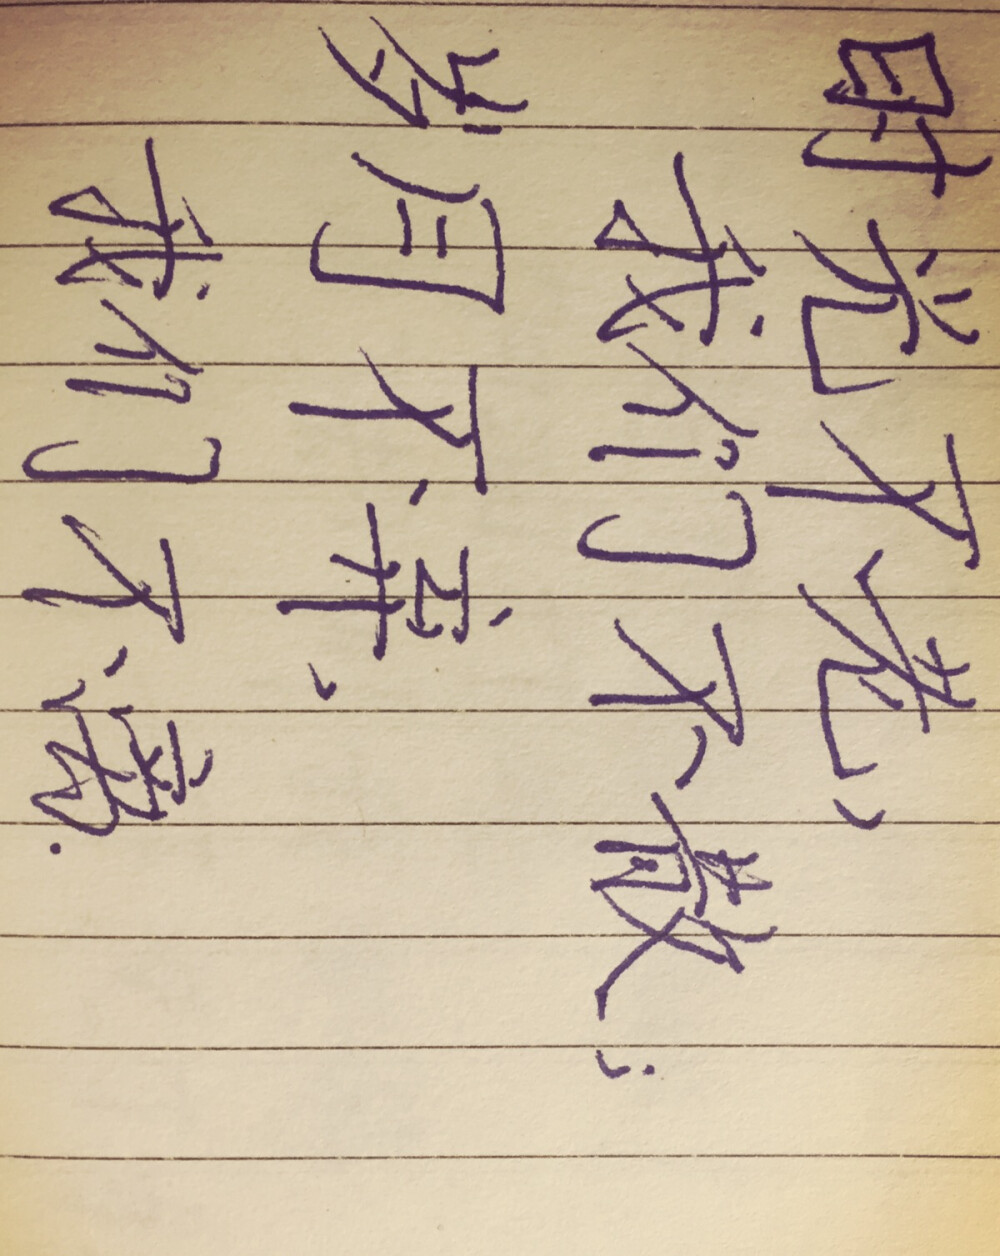 时光不老，
我们不散；
岁月不弃，
我们不离.